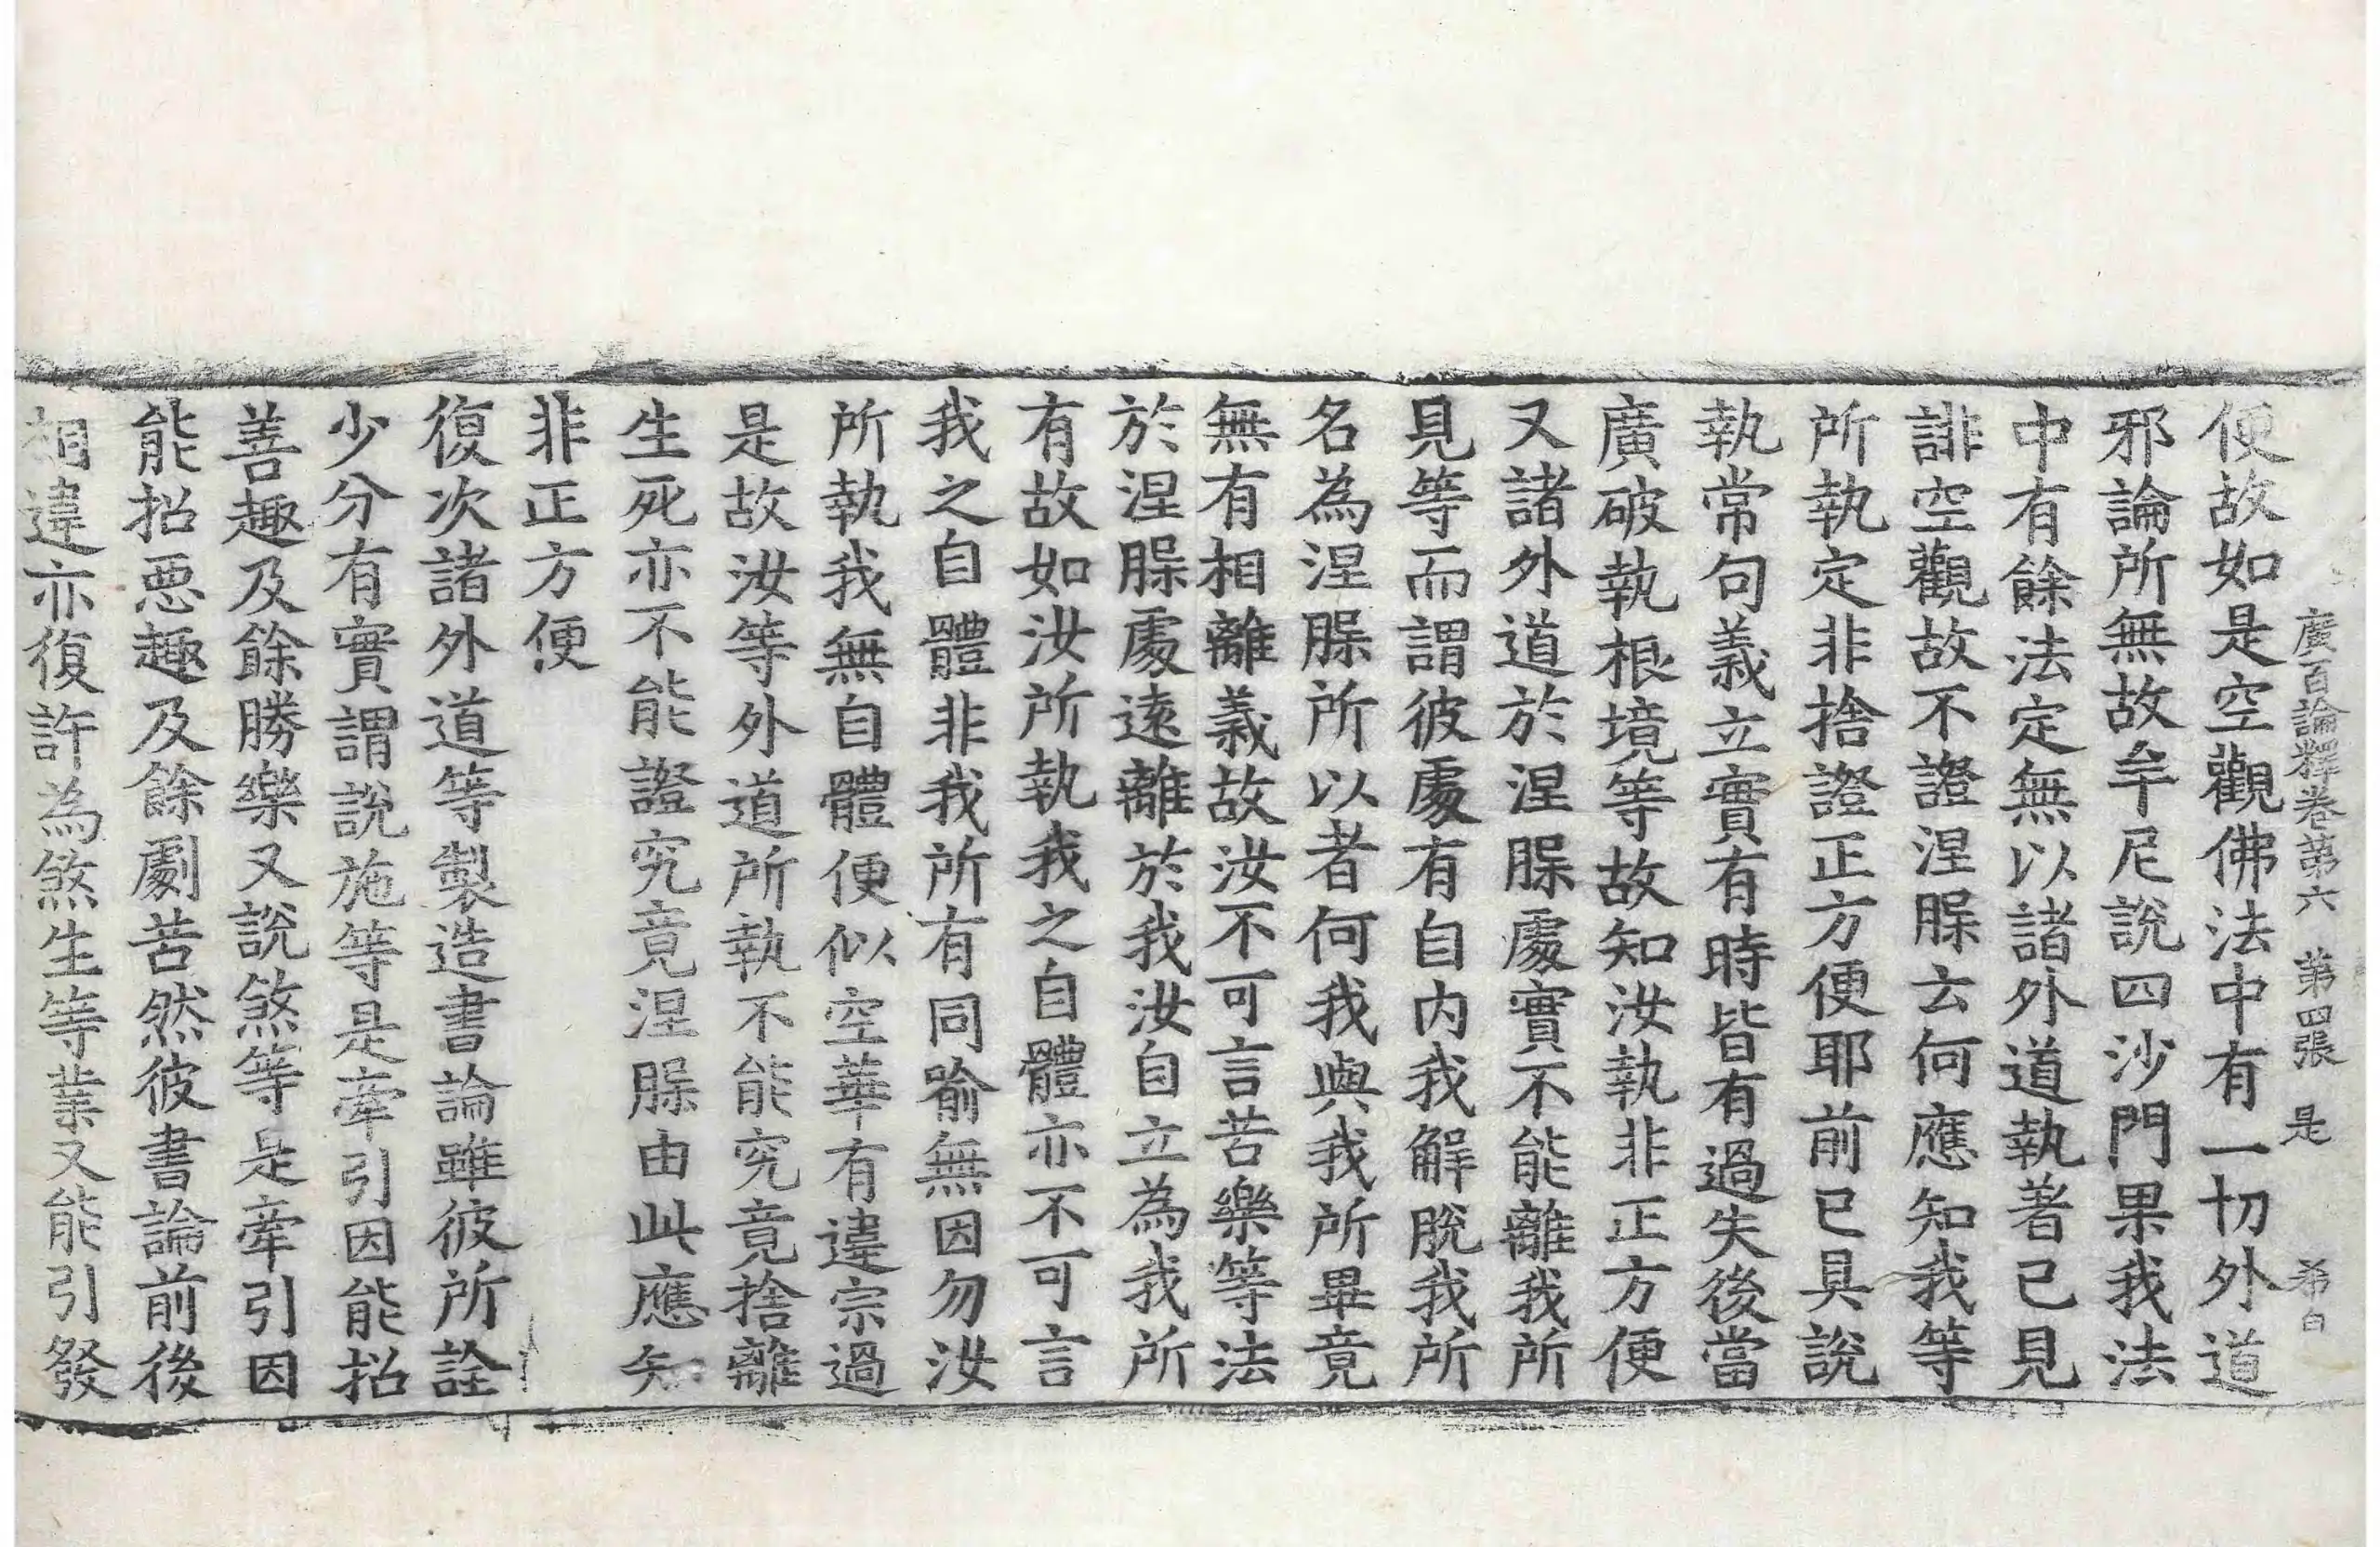 廣百論釋卷第六 第四張 是 希白
便故如是空觀佛法中有一切外道
邪論所無故牟尼說四沙門果我法
中有餘法定無以諸外道執著己見
誹空觀故不證涅槃云何應知我等
所執定非捨證正方便耶前已具說
執常句義立實有時皆有過失後當
廣破執根境等故知汝執非正方便
又諸外道於涅槃處實不能離我所
見等而謂彼處有自内我解脫我所
名為涅槃所以者何我與我所畢竟
無有相離義故汝不可言苦樂等法
於涅槃處遠離於我汝自立為我所
有故如汝所執我之自體亦不可言
我之自體非我所有同喻無因勿汝
所執我無自體便似空華有違宗過
是故汝等外道所執不能究竟捨離
生死亦不能證究竟涅槃由此應知
非正方便
復次諸外道等製造書論雖彼所詮
少分有實謂說施等是牽引因能招
善趣及餘勝樂又說煞等是牽引因
能招惡趣及餘劇苦然彼書論前後
相違亦復許為煞生等業又能引發